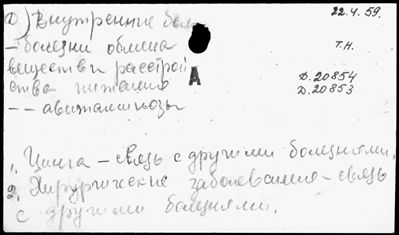 Ф) Внутренние бол
22.4.59.
– болезни обмена
Т.Н.
веществ и расстрой
А
ства питания
Д.20854
Д.20853
– – авитаминозы
1. Цинга – связь с другими болезнями.
2. Хирургические заболевания – связь
с другими болезнями.